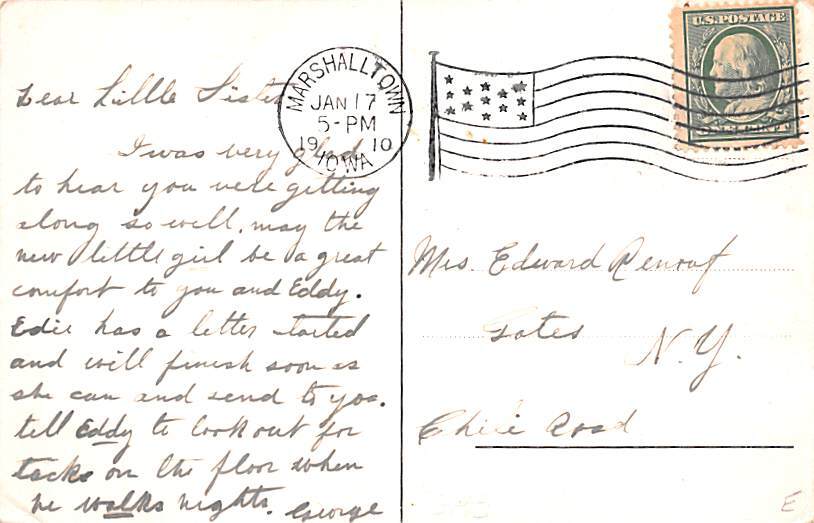 Dear Little Sister
I was very glad
to hear you were getting
along so well. may the
new little girl be a great
comfort to you and Eddy.
Edie has a letter started
and will finish soon as
she can and send to you.
tell Eddy to look out for
tacks on the floor when
he walks nights. George
MARSHALLTOWN
JAN 17
5-PM
1910
IOWA
U.S. POSTAGE
Mrs. Edward Renouf
Gates
N.Y.
Chili Road
E